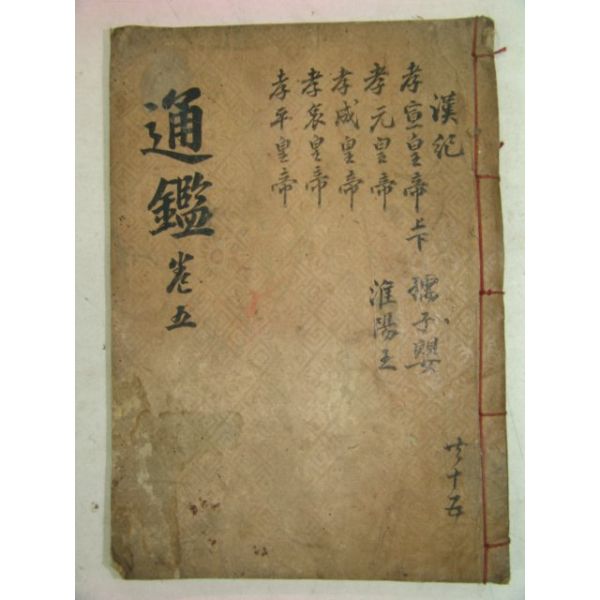 漢紀
孝宣皇帝上下
孝元皇帝
孝成皇帝
孝哀皇帝
孝平皇帝
孺子嬰
淮陽王
共十五
通鑑
卷五